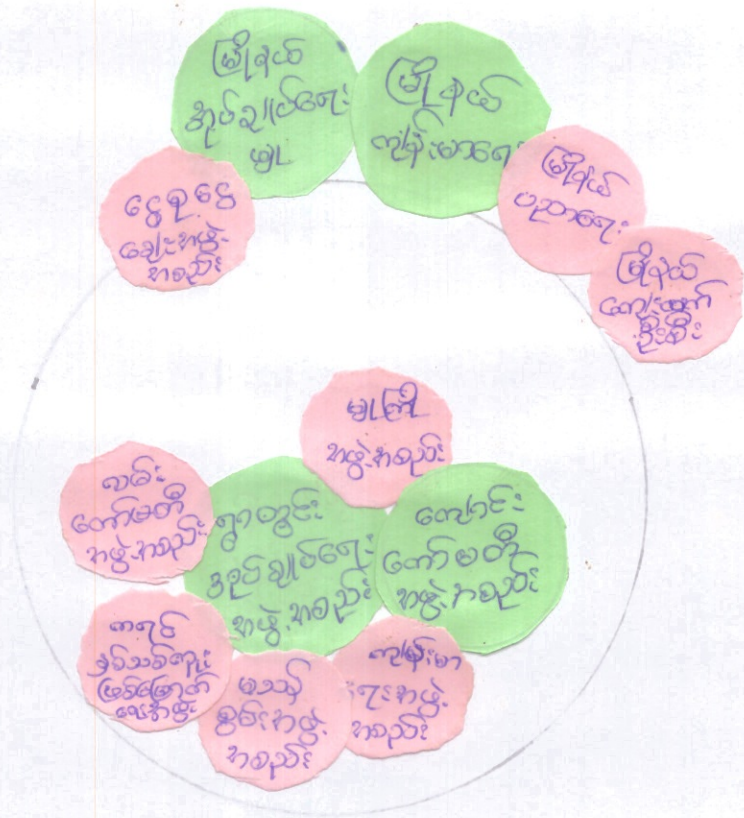 မြို့နယ်
အုပ်ချုပ်ရေး
မှူး
မြို့နယ်
ကျန်းမာရေး
မြို့နယ်
ပညာရေး
မြို့နယ်
ကျေးလက်
ဦးစီး
ငွေစုငွေ
ချေးအဖွဲ့
အစည်း
မျုကြို
အဖွဲ့အစည်း
လမ်း
ကော်မတီ
အဖွဲ့အစည်း
ရွာတွင်း
အုပ်ချုပ်ရေး
အဖွဲ့အစည်း
ကျောင်း
ကော်မတီ
အဖွဲ့အစည်း
ကရင်
နှစ်သစ်ကူး
ဖြစ်မြောက်
ရေးအဖွဲ့
မသန်
စွမ်းအဖွဲ့
အစည်း
ကျန်းမာ
ရေးအဖွဲ့
အစည်း